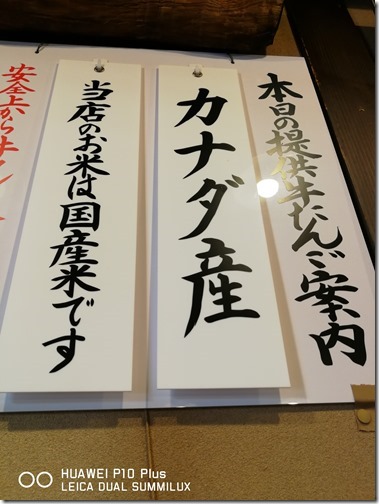 本日の提供牛たんご案内
カナダ産
当店のお米は国産米です
安全上から牛
HUAWEI P10 Plus
LEICA DUAL SUMMILUX